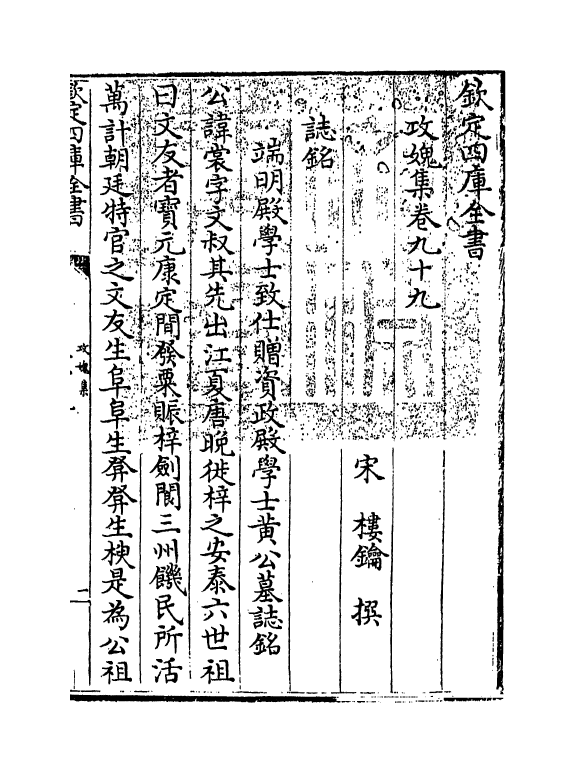 欽定四庫全書
攻媿集卷九十九
宋　樓鑰　撰
誌銘
端明殿學士致仕贈資政殿學士黄公墓誌銘
公諱裳字文叔其先出江夏唐晚徙梓之安泰六世祖
曰文友者寶元康定間發粟賑梓劍閬三州饑民所活
萬計朝廷特官之文友生阜阜生㢡㢡生椣是為公祖
欽定四庫全書
攻媿集